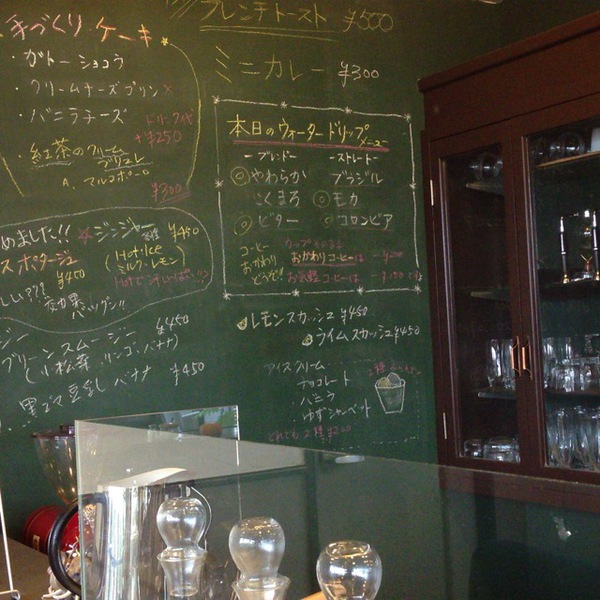 フレンチトースト ¥500
ミニカレー ¥300
手づくりケーキ
・ガトーショコラ
・クリームチーズプリン ×
・バニラチーズ
ドリンク代
+¥250
・紅茶のクリーム
ブリュレ
A. マルコポーロ
¥300
めました!!
スポタージュ
¥450
ジンジャー ¥450
(Hot・Ice
ミルク・レモン)
グリーンスムージー ¥450
(小松菜・リンゴ・バナナ)
黒ゴマ豆乳バナナ ¥450
本日のウォータードリップメニュー
ーブレンドー
◎やわらか
こくまろ
◎ビター
ーストレートー
ブラジル
◎モカ
◎コロンビア
コーヒー
おかわり
どうぞ!
おかわりコーヒーは
お気軽コーヒーは
レモンスカッシュ ¥450
ライムスカッシュ ¥450
アイスクリーム
・チョコレート
・バニラ
・ゆずシャーベット
どれでも2種 ¥200